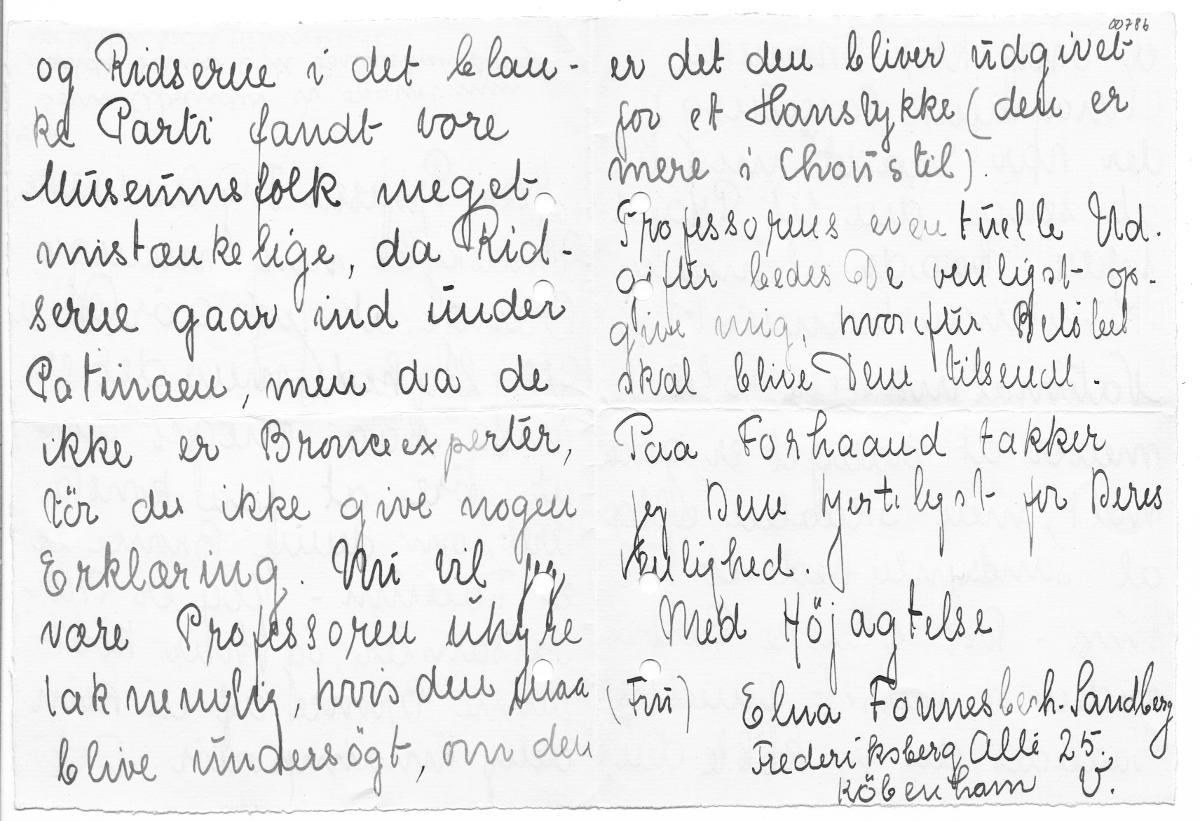 00786
og Ridserne i det blan-
ke Parti fandt vore
Museumsfolk meget
mistænkelige, da Rid-
serne gaar ind under
Patinaen, men da de
ikke er Bronceexperter,
tör de ikke give nogen
Erklæring. Nu vil jeg
være Professoren uhyre
taknemlig hvis den maa
blive undersögt, om den
er det den bliver udgivet
for et Hanstykke (den er
mere i Choustil).
Professorens eventuelle Ud-
gifter bedes De venligst op-
give mig, hvorefter Beløbet
skal blive Dem tilsendt.
Paa Forhaand takker
jeg Dem hjerteligst for Deres
Venlighed.
Med Höjagtelse
(Fru) Elna Fonnesbech-Sandberg
Frederiksberg Allé 25.
Köbenham V.